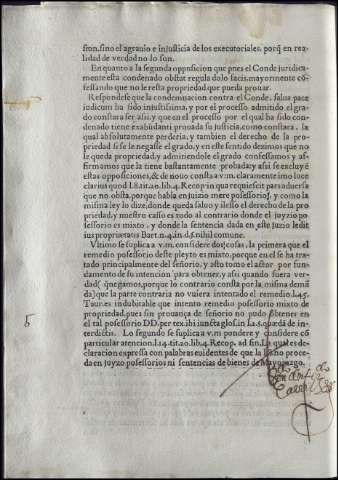 son, sino el agrauio e injusticia de los executoriales, porq̃ en rea
lidad de verdad no lo son.
En quanto a la segunda opposicion que pues el Conde juridica
mente esta condenado obstat regula dolo facit, mayormente cõ-
fessando que no le resta propriedad que pueda prouar.
Respondese que la condemnacion contra el Conde, salua pace
judicum ha sido injustissima, y por el processo admitido el gra
do constara ser assi: y que en el processo por el qual ha sido con
denado tiene exabũdanti prouada su justicia, como constara, la
qual absolutamente perderia, y tambien el derecho de la pro
priedad si se le negasse el grado, y en este sentido dezimos que no
le queda propriedad y admitiendole el grado confessamos y af-
firmamos que la tiene bastantamente probada: y assi se excluyẽ
estas opposiciones, &c de nouo consta a v.m. claramente imo luce
clarius quod l.8.tit.20.lib.4.Recop in qua requiescit pars aduersa
que no obsta, porque habla en juizio mere possessorio, y como la
misma ley lo dize, donde queda saluo y illesso el derecho de la pro
priedad, y nuestro casso es todo al contrario donde el juyzio po-
ssessorio es mixto, y donde la sentencia dada en este juzio ledit
ius proprietatis Bart.n.4.in d.§.nihil comune.
Vltimo se suplica a v.m. considere dos cosas, la primera que el
remedio possessorio deste pleyto es mixto, porque en el se ha tra
tado principalmente del señorio, y a esto tomo el actor por fun
damento de su intencion para obtener, y assi quando fuera ver-
dad (que negamos, porque lo contrario consta por la misma demã
da) que la parte contraria no vuiera intentado el remedio l.45.
Taur. es indubitable que intento remedio possessorio mixto de
propriedad, pues sin prouança de señorio no pudo obtener en
el tal possessorio DD. per tex. ibi iuncta glos. in l.2.§. quædã de in-
terdictis. Lo segundo se suplica a v.m. pondere y considere cõ
particular atencion l.14.tit.20.lib.4.Recop. ad fin. La qual es de-
claracion expressa con palabras euidentes de que la ... no proce
da en juyzo possessorio ni sentencias de bienes de Mayorazgo.